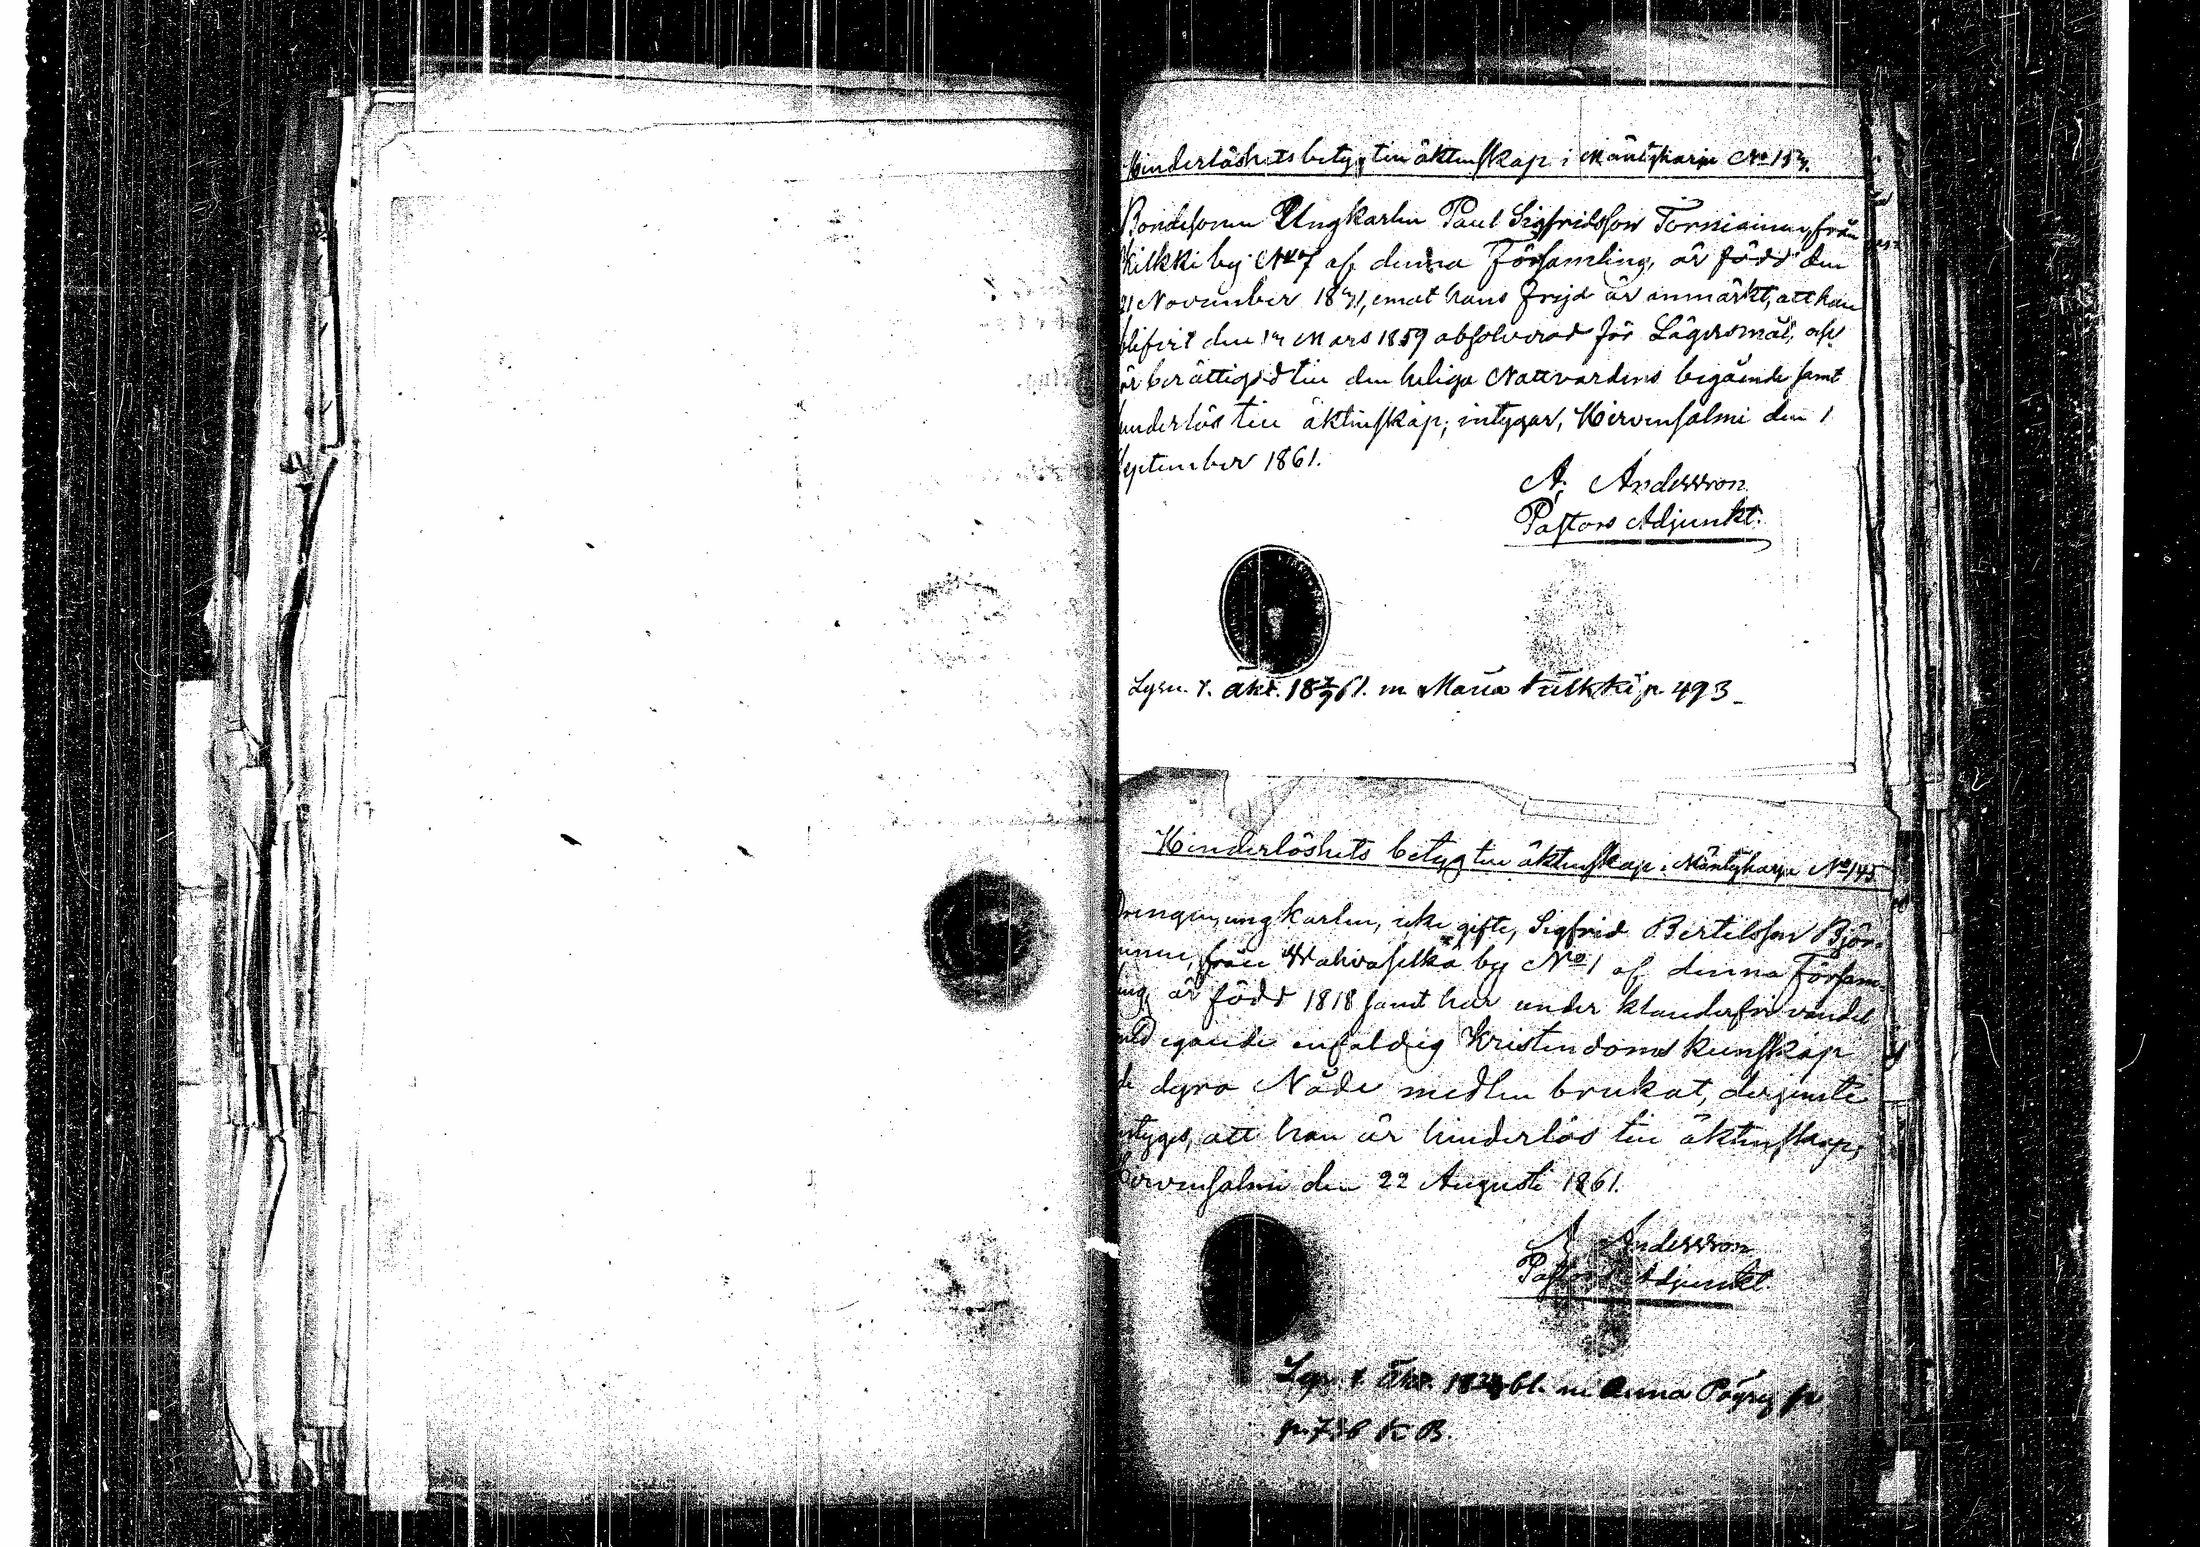 Hinderlöshets betyg till äktenskap i Mäntyharju No 157.
Bondesonen Ungkarlen Paul Sigfridsson Torniainen, från
Kilkki by No 7 af denna Församling, är född den
21 November 1841, emot hans frejd är anmärkt, att han
blifvit den Mars 1859 absolverad för Lägersmål, och
är berättigad till den heliga Nattvardens begående samt
hinderlös till äktenskap; intygar, Hirvensalmi den 1
September 1861.
A. Andersson
Pastors Adjunkt.
Lysn. t. äkt. 18 61. m Maria p. 493
Hinderlöshets betyg till äktenskap i Mäntyharju No 145
Drengen, ungkarlen, icke gifte, Sigfrid Bertilsson Björ-
ninen, från Wahvaselkä by No 1 af denna Försam-
ling är född 1818 samt har under klanderfri vandel
med egande enfaldig Kristendoms kunskap
de dyra Nåde medlen brukat, derjemte
intygas, att han är hinderlös till äktenskap;
Hirvensalmi den 22 Augusti 1861.
A Andersson
Pastors Adjunkt.
Lysn. t. äkt. 18 61. m Anna Pöyry
K B.